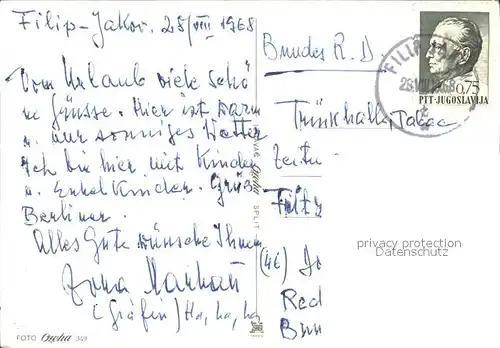 Filip-Jakov. 28/VIII 1968
Vom Urlaub viele schö
ne Grüsse. Hier ist warm
u. nur sonniges Wetter
Ich bin hier mit Kinder
u. Enkelkinder. Grüß
Berliner.
Alles Gute wünsche Ihnen
(Gräfin) Ha, ha, ha
FOTO 349
SPLIT
Bundes R. D
Trinkhalle, Tabac
Fritz
(46) Do
Red
FILIP
28.VIII.1968
0,75
PTT-JUGOSLAVIJA
privacy protection
Datenschutz